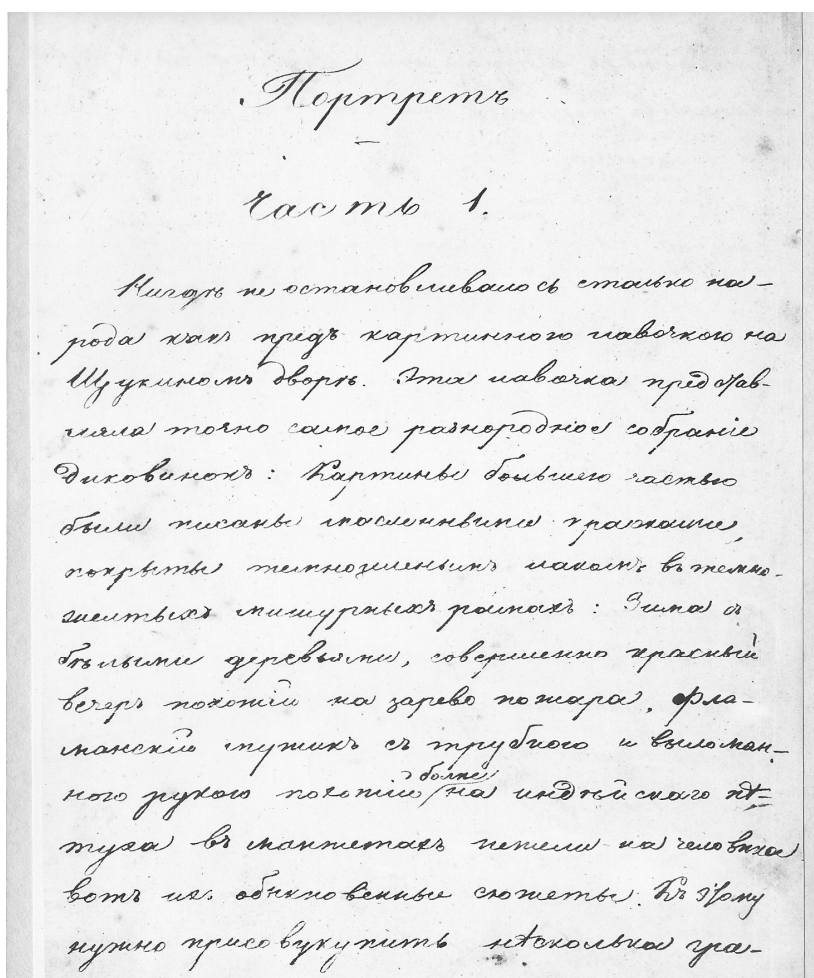 Портретъ
Часть 1.
Нигдѣ не остановливалось столько на-
рода какъ предъ картинною лавочкою на
Щукиномъ дворѣ. Эта лавочка представ-
ляла точно самое разнородное собранiе
диковинокъ: Картины большею частью
были писаны масленными красками,
покрыты темнозеленымъ лакомъ въ темно-
желтыхъ мишурныхъ рамахъ: Зима съ
бѣлыми деревьями, совершенно красный
вечеръ похожiй на зарево пожара, Фла-
манскiй мужикъ съ трубкою и выломан-
ною рукою похожiй болѣе на индѣйскаго пѣ-
туха въ манжетахъ нежели на человѣка
вотъ ихъ обыкновенные сюжеты. Къ этому
нужно присовукупить нѣсколько гра-